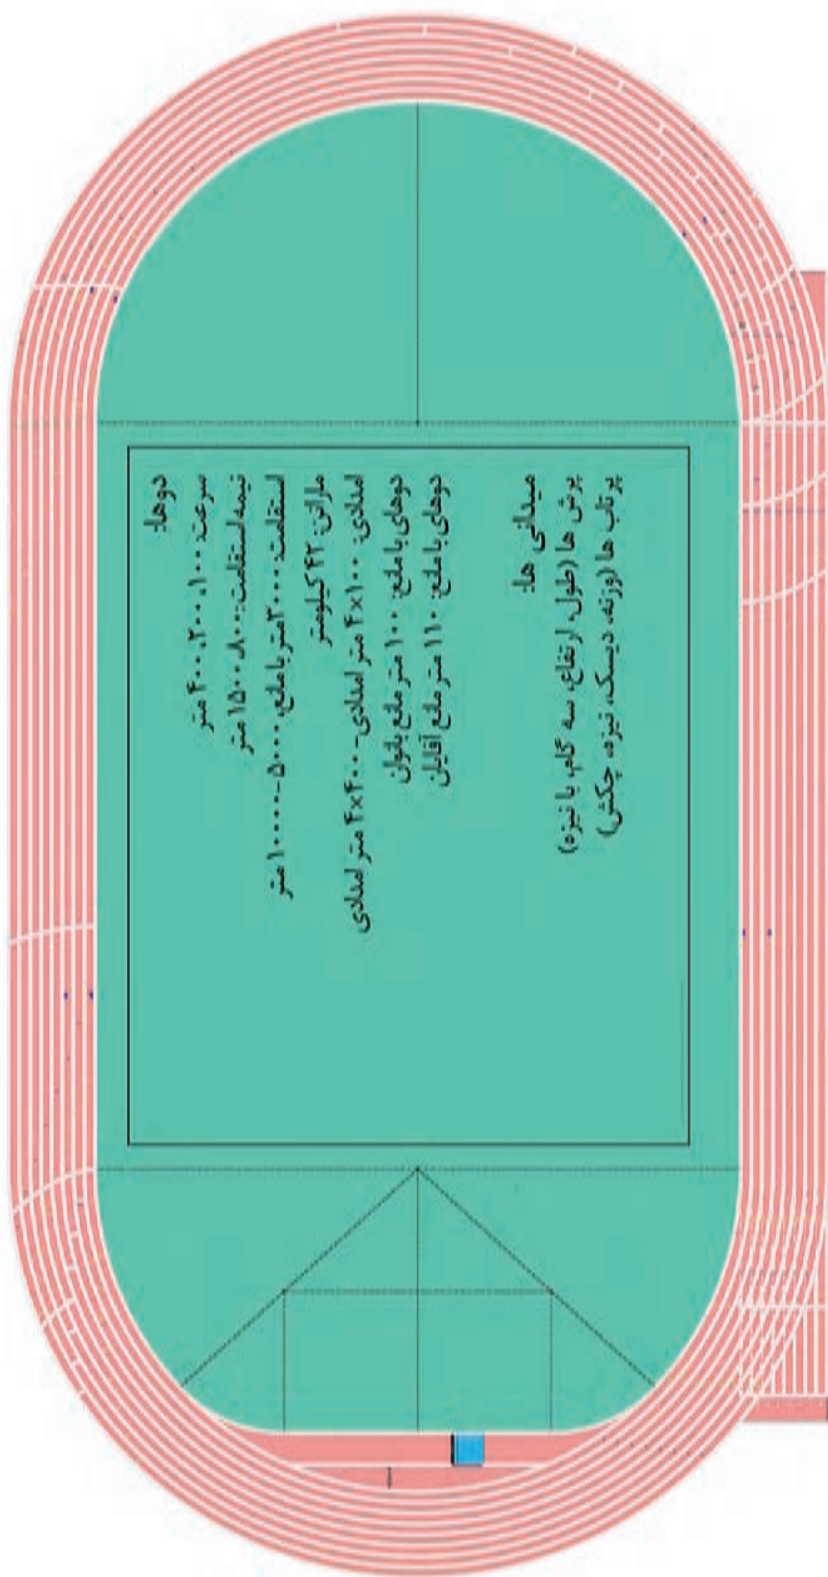 دوها:
سرعت: ۱۰۰، ۲۰۰، ۴۰۰ متر
نیمه استقامت: ۸۰۰، ۱۵۰۰ متر
استقامت: ۳۰۰۰ متر با مانع، ۵۰۰۰-۱۰۰۰۰ متر
ماراتن: ۴۲ کیلومتر
امدادی: ۴x۱۰۰ متر امدادی-۴x۴۰۰ متر امدادی
دوهای با مانع: ۱۰۰ متر مانع بانوان
دوهای با مانع: ۱۱۰ متر مانع آقایان
میدانی ها:
پرش ها (طول، ارتفاع، سه گام، با نیزه)
پرتاب ها (وزنه، دیسک، نیزه، چکش)